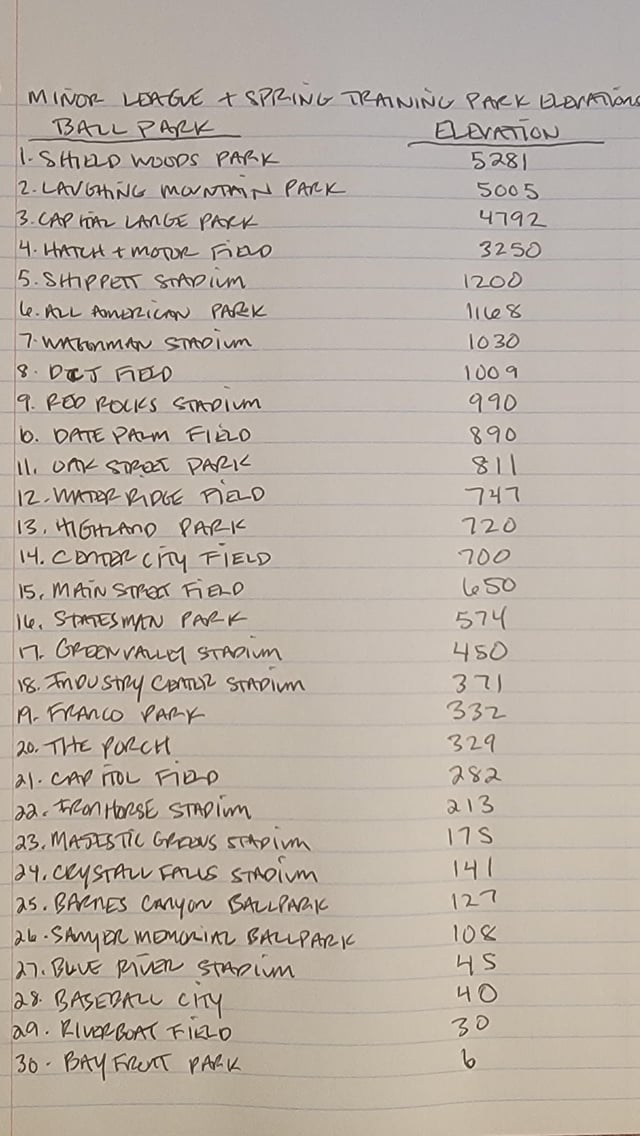 MINOR LEAGUE + SPRING TRAINING PARK ELEVATIONS
BALL PARK ELEVATION
1. SHIELD WOODS PARK 5281
2. LAUGHING MOUNTAIN PARK 5005
3. CAPITAL LARGE PARK 4792
4. HATCH + MOTOR FIELD 3250
5. SHIPPETT STADIUM 1200
6. ALL AMERICAN PARK 1168
7. WATERMAN STADIUM 1030
8. FIELD 1009
9. RED ROCKS STADIUM 990
10. DATE PALM FIELD 890
11. OAK STREET PARK 811
12. WATER RIDGE FIELD 747
13. HIGHLAND PARK 720
14. CENTER CITY FIELD 700
15. MAIN STREET FIELD 650
16. STATESMAN PARK 574
17. GREEN VALLEY STADIUM 450
18. INDUSTRY CENTER STADIUM 371
19. FRANCO PARK 332
20. THE PORCH 329
21. CAPITOL FIELD 282
22. IRON HORSE STADIUM 213
23. MAJESTIC GREENS STADIUM 175
24. CRYSTALL FALLS STADIUM 141
25. BARNES CANYON BALLPARK 127
26. SAWYER MEMORIAL BALLPARK 108
27. BLUE RIVER STADIUM 45
28. BASEBALL CITY 40
29. RIVERBOAT FIELD 30
30. BAY FRONT PARK 6